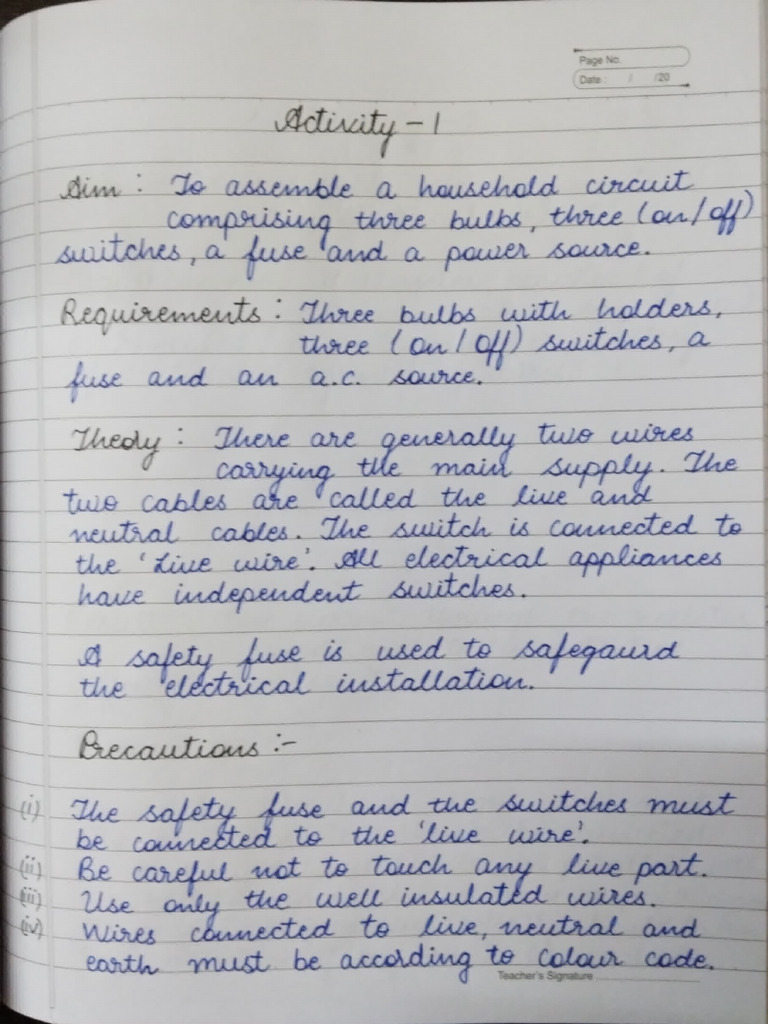 Page No.
Date : / /20
Activity - 1
Aim : To assemble a household circuit
comprising three bulbs, three (on/off)
switches, a fuse and a power source.
Requirements : Three bulbs with holders,
three (on/off) switches, a
fuse and an a.c. source.
Theory : There are generally two wires
carrying the main supply. The
two cables are called the live and
neutral cables. The switch is connected to
the 'Live wire'. All electrical appliances
have independent switches.
A safety fuse is used to safegaurd
the electrical installation.
Precautions :-
(i) The safety fuse and the switches must
be connected to the 'live wire'.
(ii) Be careful not to touch any live part.
(iii) Use only the well insulated wires.
(iv) Wires connected to live, neutral and
earth must be according to colour code.
Teacher's Signature